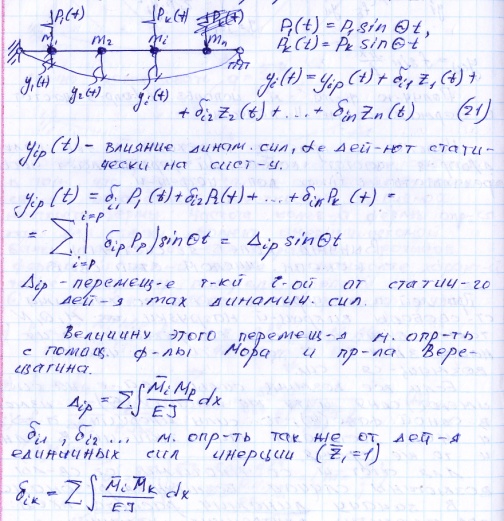 P₁(t) Pₖ(t)
m₁ m₂ mᵢ mₙ
y₁(t) y₂(t) yᵢ(t)
P₁(t) = P₁ sin Θt,
Pₖ(t) = Pₖ sin Θt
yᵢ(t) = yᵢₚ(t) + δᵢ₁ z₁(t) +
+ δᵢ₂ z₂(t) + ... + δᵢₙ zₙ(t) (21)
yᵢₚ(t) - влияние динам. сил, де дей-ют стати-
чески на сист-у.
yᵢₚ(t) = δᵢ₁ P₁(t) + δᵢ₂ P₂(t) + ... + δᵢₖ Pₖ(t) =
= ∑ δᵢₚ Pₚ) sin Θt = Δᵢₚ sin Θt
i=p
i=p
Δᵢₚ - перемещ-е т-ки i-ой от статич-го
дей-я max динамич. сил.
Величину этого перемещ-я м. опр-ть
с помощ. ф-лы Мора и пр-ла Вере-
щагина.
Δᵢₚ = ∑∫ M̄ᵢ Mₚ / EJ dx
δᵢ₁, δᵢ₂ ... м. опр-ть так же от дей-я
единичных сил инерции (Z̄₁=1)
δᵢₖ = ∑∫ M̄ᵢ M̄ₖ / EJ dx